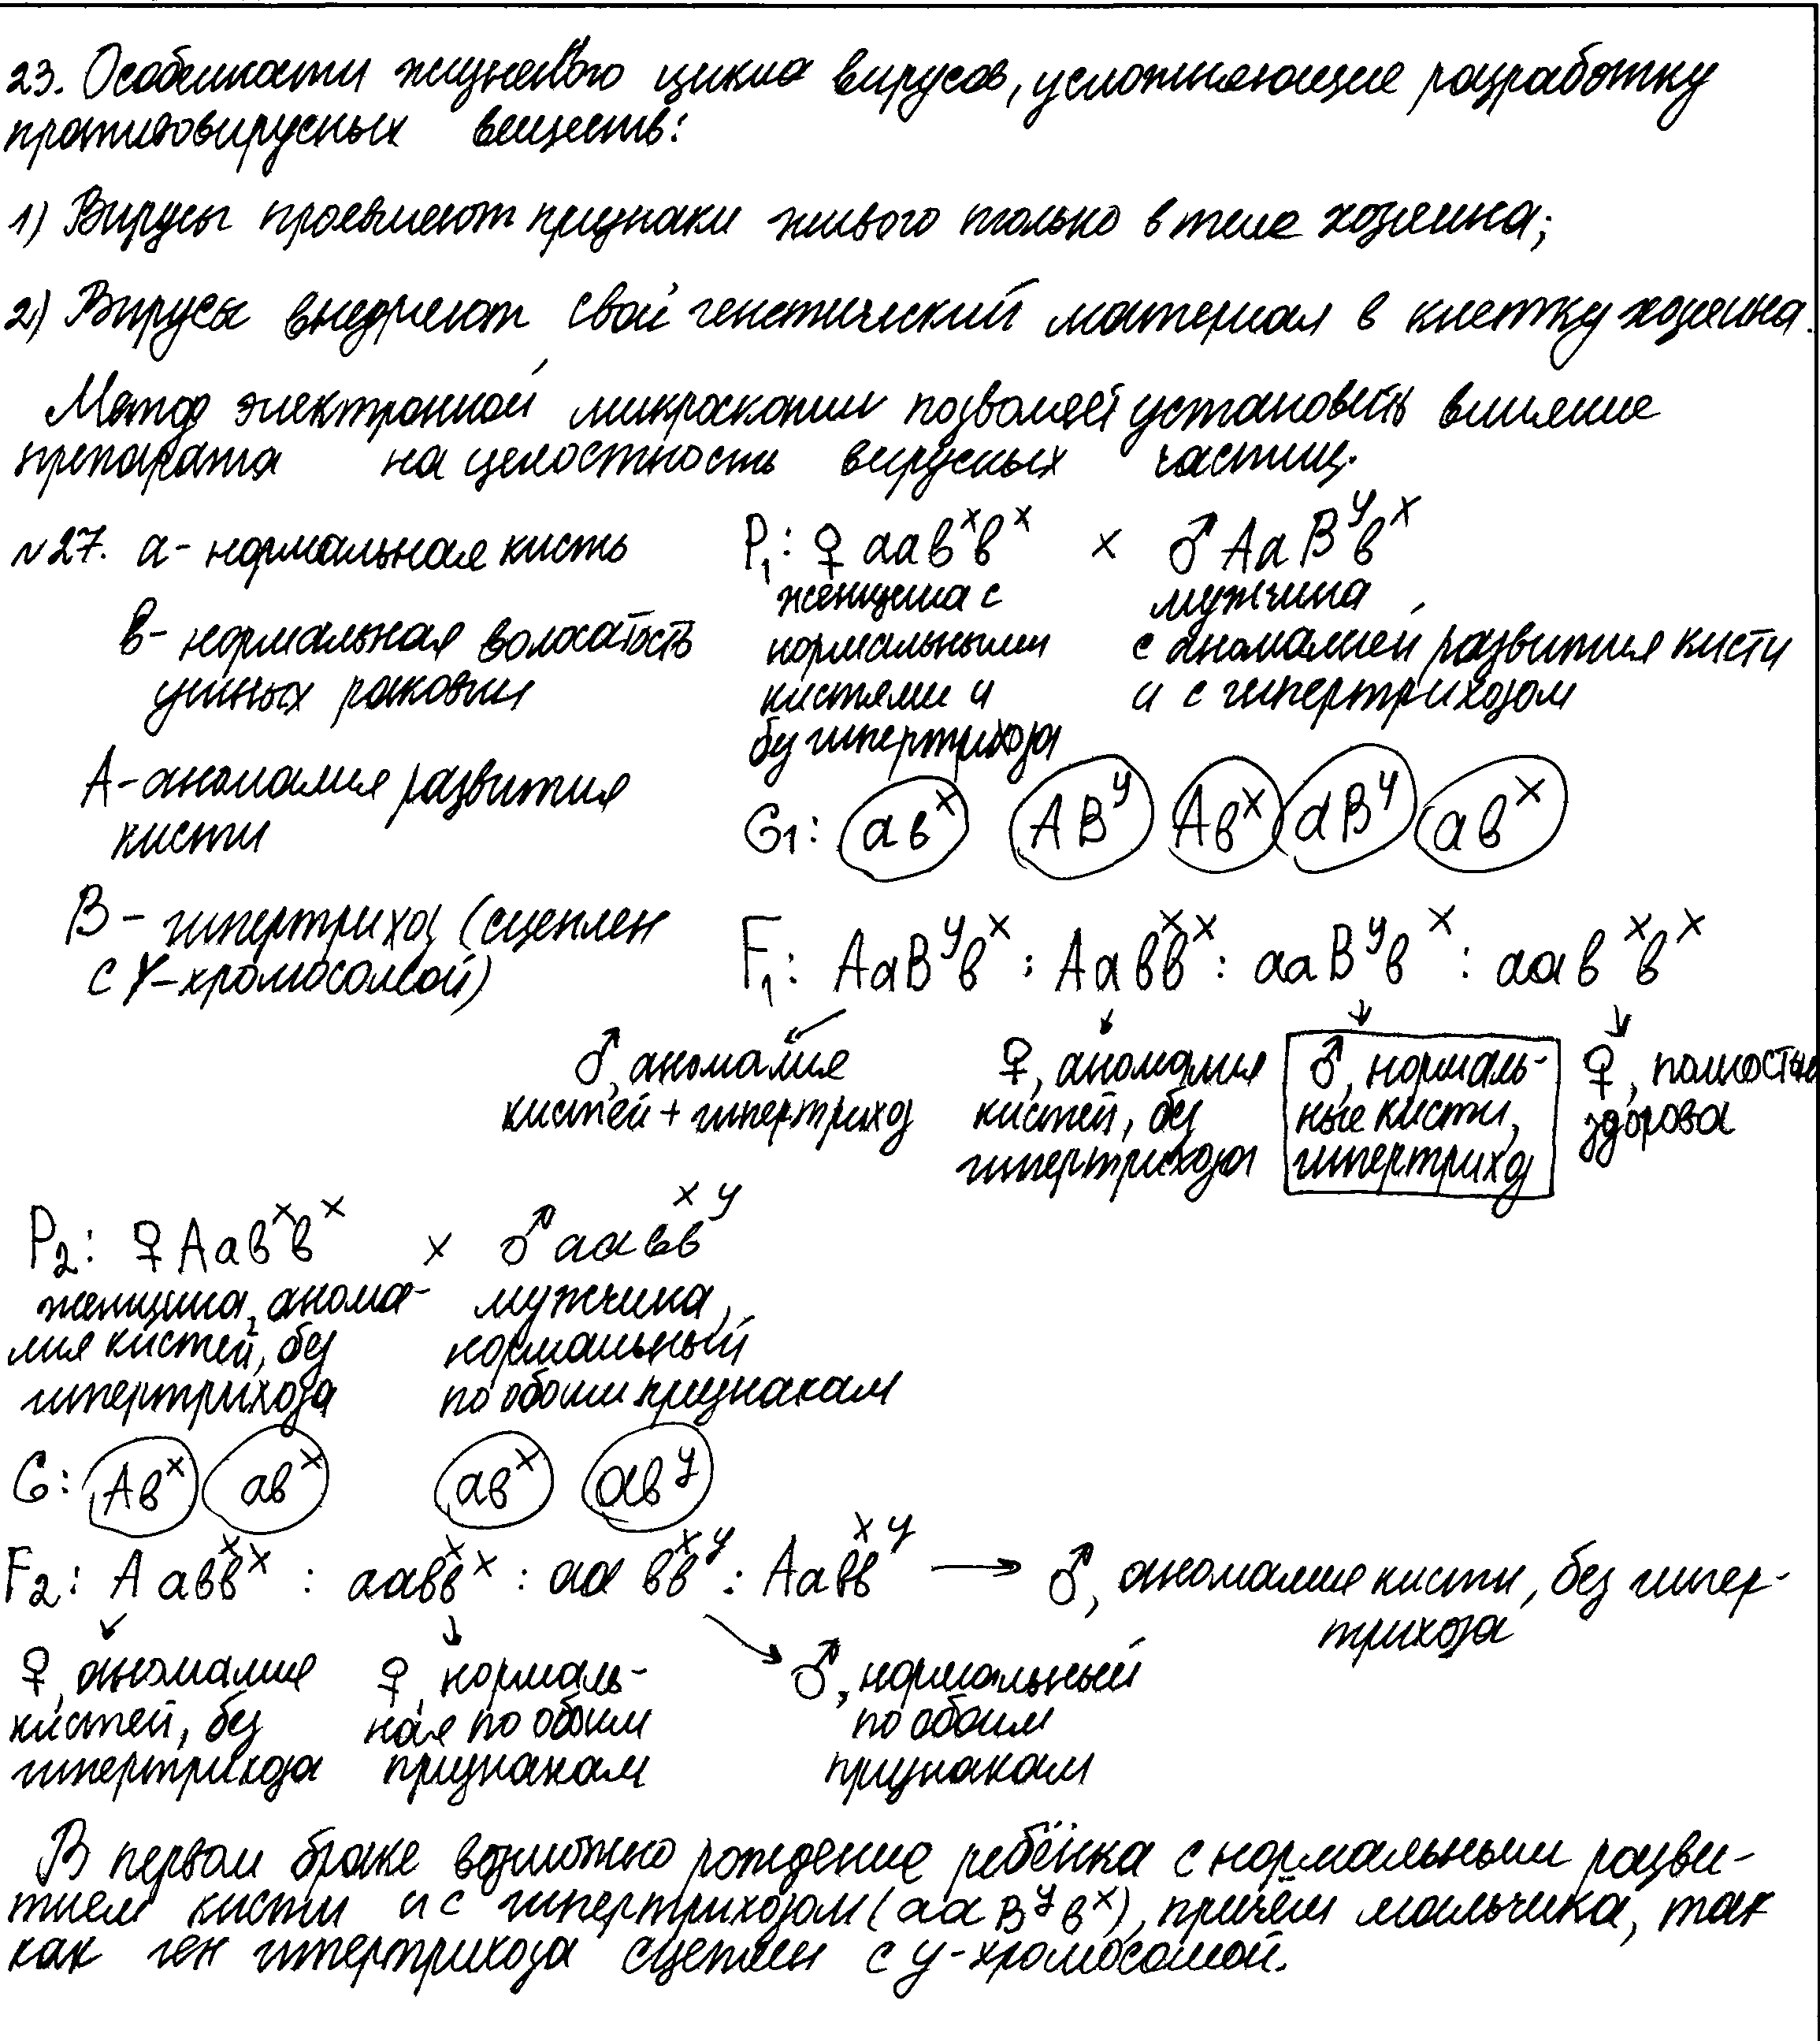 23. Особенности жизненного цикла вирусов, усложняющие разработку
противовирусных веществ:
1) Вирусы проявляют признаки живого только в теле хозяина;
2) Вирусы внедряют свой генетический материал в клетку хозяина.
Метод электронной микроскопии позволяет установить влияние
препарата на целостность вирусных частиц.
№27. а - нормальная кисть
в - нормальная волосатость
ушных раковин
А - аномалия развития
кисти
В - гипертрихоз (сцеплен
с Y-хромосомой)
P₁: ♀ аав^хв^х × ♂ АаВ^ув^х
женщина с
нормальными
кистями и
без гипертрихоза
мужчина
с аномалией развития кисти
и с гипертрихозом
G₁: ав^х АВ^у Ав^х аВ^у ав^х
F₁: АаВ^ув^х : Аав^хв^х : ааВ^ув^х : аав^хв^х
♂, аномалия
кистей + гипертрихоз
♀, аномалия
кистей, без
гипертрихоза
♂, нормаль-
ные кисти,
гипертрихоз
♀, полностью
здорова
P₂: ♀ Аав^хв^х × ♂ аав^хв^у
женщина, анома-
лия кистей, без
гипертрихоза
мужчина,
нормальный
по обоим признакам
G: Ав^х ав^х ав^х ав^у
F₂: Аав^хв^х : аав^хв^х : аа в^хв^у : Аав^хв^у → ♂, аномалия кисти, без гипер-
трихоза
♀, аномалия
кистей, без
гипертрихоза
♀, нормаль-
ная по обоим
признакам
♂, нормальный
по обоим
признакам
В первом браке возможно рождение ребёнка с нормальным разви-
тием кисти и с гипертрихозом (ааВ^ув^х), причём мальчика, так
как ген гипертрихоза сцеплен с у-хромосомой.